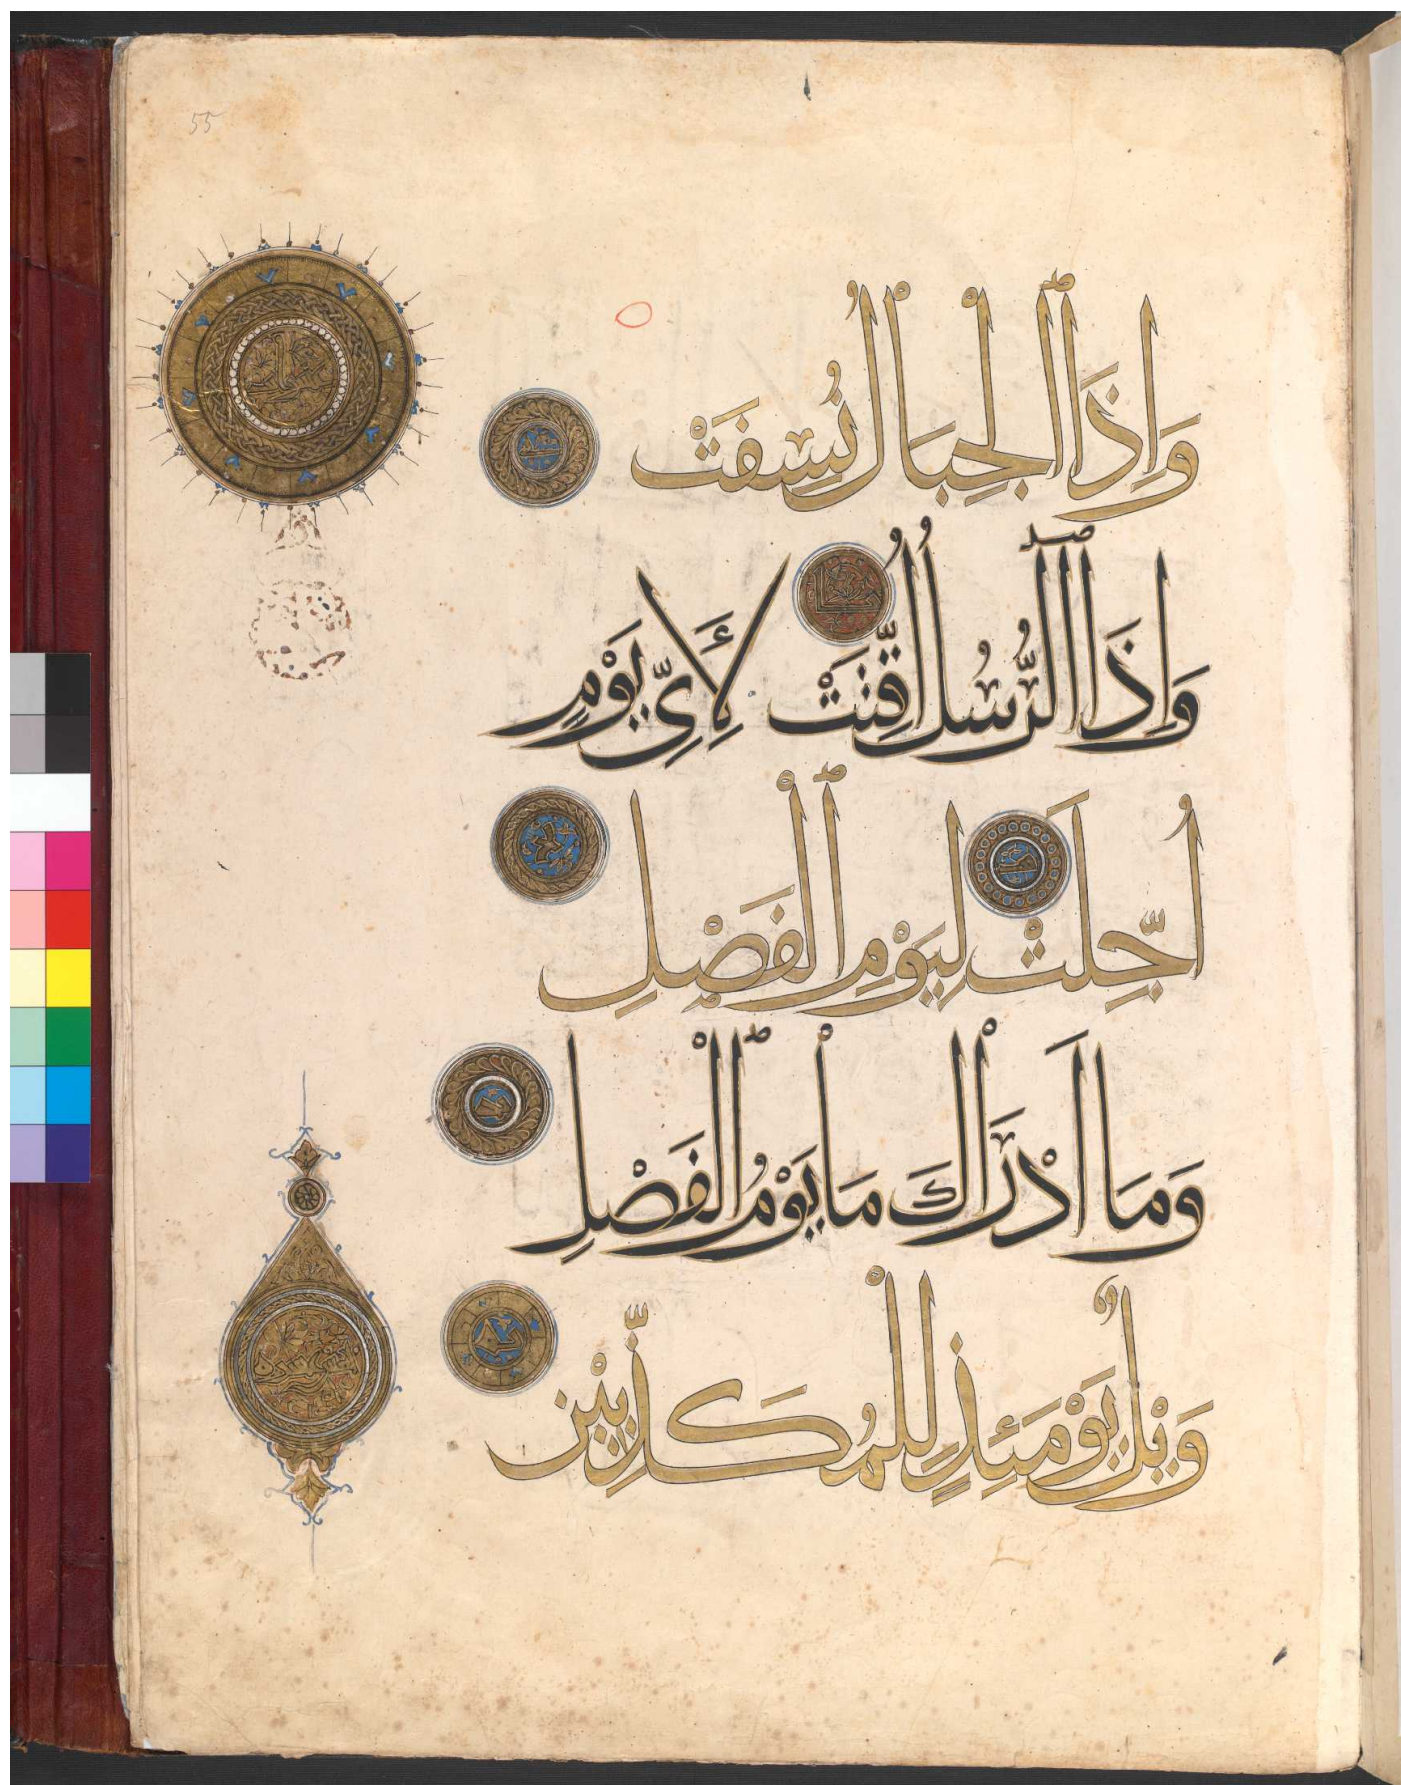 55
وَاِذَا الْجِبَالُ نُسِفَتْ
وَاِذَا الرُّسُلُ اُقِّتَتْ لِأَيِّ يَوْمٍ
اُجِّلَتْ لِيَوْمِ الْفَصْلِ
وَمَا اَدْرَاكَ مَا يَوْمُ الْفَصْلِ
وَيْلٌ يَوْمَئِذٍ لِلْمُكَذِّبِيْنَ